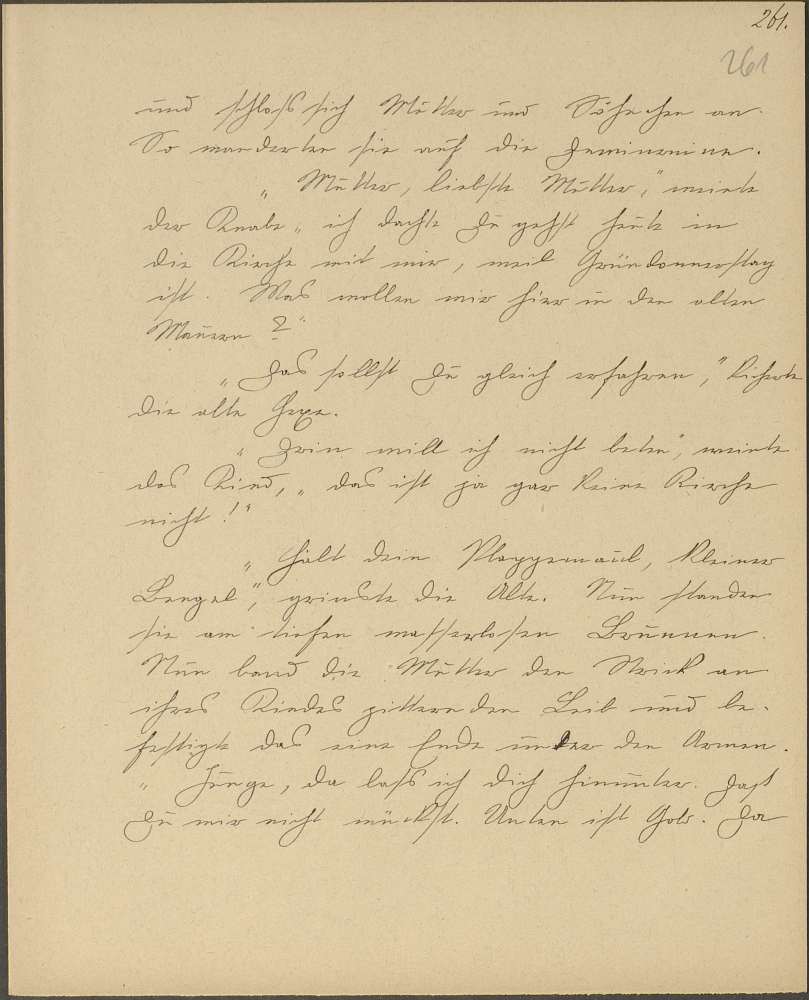 261.
261
und schloss sich Mutter und Söhnchen an.
So wanderten sie auf die
„Mutter, liebste Mutter," meinte
der Knabe „ich dachte Du gehst heute in
die Kirche mit mir, weil Gründonnerstag
ist. Was wollen wir hier in den alten
Mauern?"
„Das sollst Du gleich erfahren," kicherte
die alte Hexe.
„Drin will ich nicht beten", weinte
das Kind, „das ist ja gar keine Kirche
nicht!"
„Halt dein Plappermaul, kleiner
Bengel", grinste die Alte. Nun standen
sie am tiefen wasserlosen Brunnen.
Nun band die Mutter den Strick an
ihres Kindes zitternden Leib und be-
festigte das eine Ende unter den Armen.
„Junge, da lass ich dich hinunter. Dast
Du mir nicht muckst. Unten ist Gold. Da